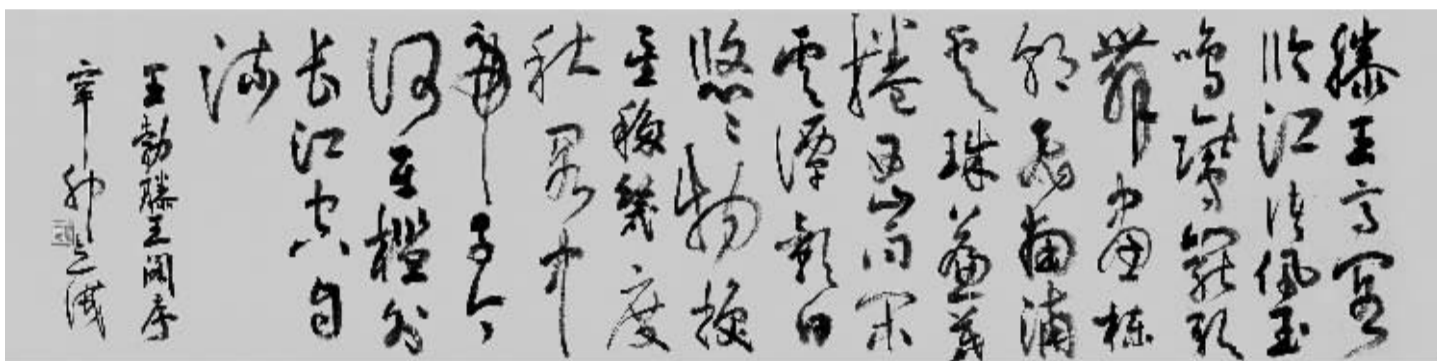 滕王高閣
臨江渚佩玉
鳴鸞罷歌
舞畫棟
朝飛南浦
雲珠簾暮
捲西山雨閑
雲潭影日
悠々物換
星移幾度
秋閣中
帝子今
何在檻外
長江空自
流
王勃滕王閣序
辛卯